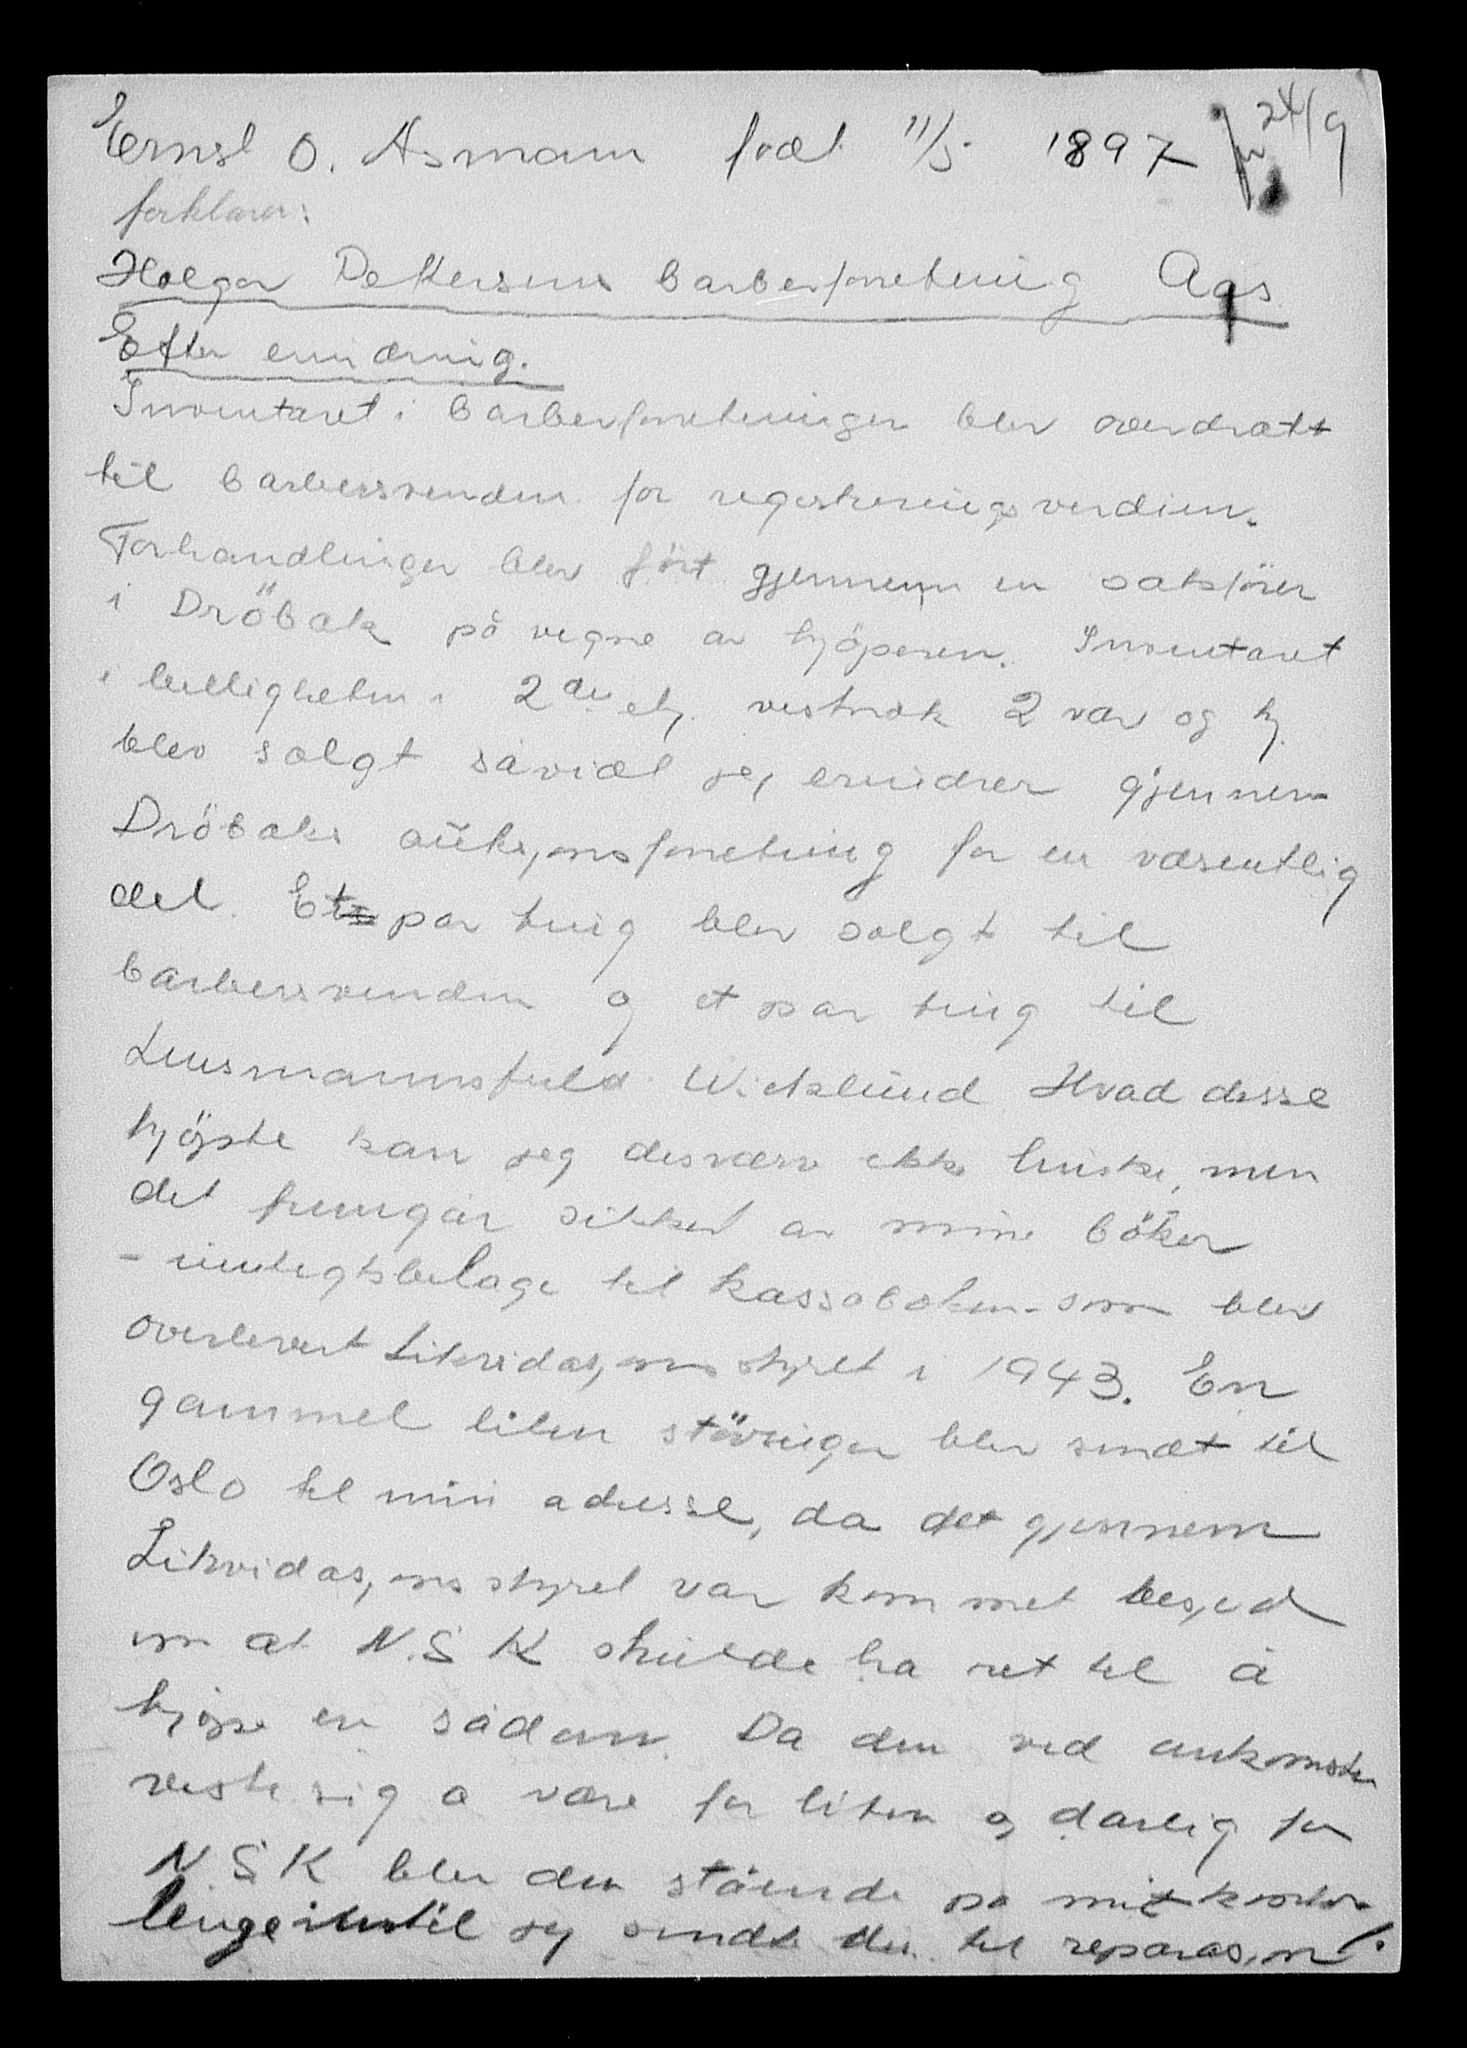 Ernst O. Asmann født 11/5. 1897 24/9
forklarer:
Holger Pettersens barberforretning Aas
Efter erindring.
Inventaret i barberforretningen blev overdratt
til barbersvenden for registreringsverdien.
Forhandlinger blev ført gjennem en saksfører
i Dröbak på vegne av kjøperen. Inventaret
i leiligheten i 2den etg. vistnok 2 vær og kj.
blev solgt såvidt jeg erindrer gjennem
Dröbaks auksjonsforretning for en væsentlig
del. Et par ting blev solgt til
barbersvenden og et par ting til
Lensmannsfuldm. Wicklund Hvad disse
kjøpte kan jeg desværre ikke huske, men
det fremgår sikkert av mine böker
- inntegtsbilage til kassaboken - som blev
overlevert Likvidasjonsstyret i 1943. En
gammel liten støvsuger blev sendt til
Oslo til min adresse, da det gjennem
Likvidasjonsstyret var kommet beskjed
om at N.S.K skulde ha ret til å
kjøpe en sådann. Da den ved ankomsten
viste sig å være for liten og dårlig for
N.S.K blev den stående på mit kontor
lenge inntil jeg sendte den til reparasjon.